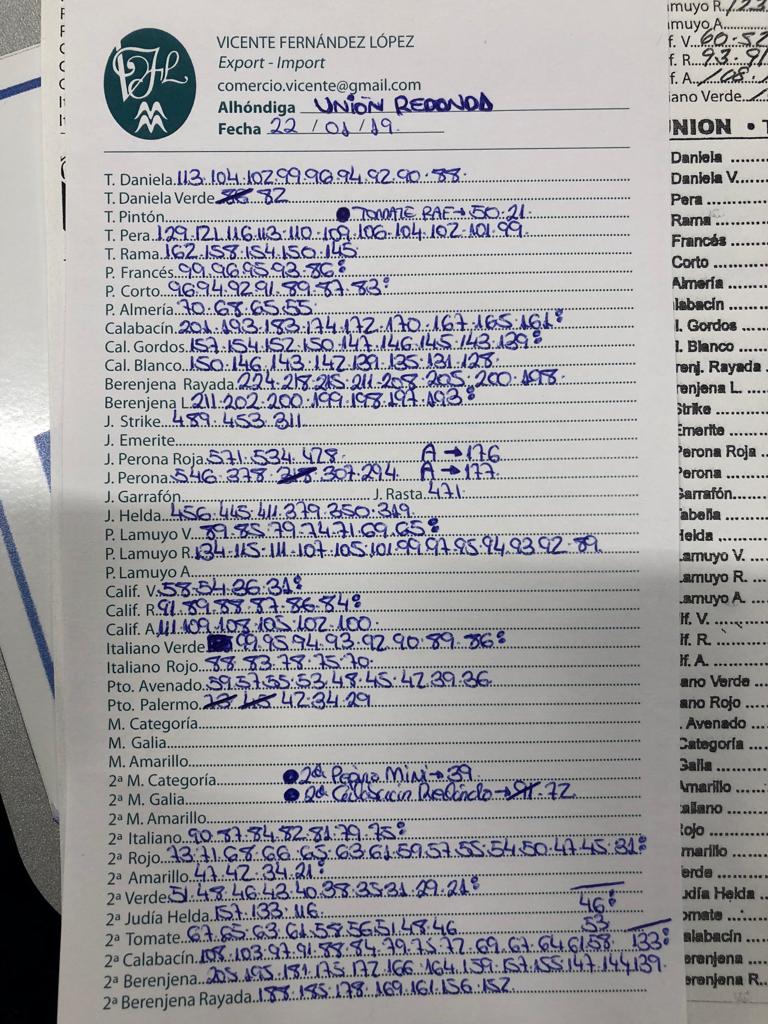 VICENTE FERNÁNDEZ LÓPEZ
Export - Import
comercio.vicente@gmail.com
Alhóndiga UNION REDONDA
Fecha 22 / 01 / 19.
T. Daniela 113.104.102.99.96.94.92.90.88.
T. Daniela Verde 86 82
T. Pintón TOMATE RAF→50.21.
T. Pera 129.121.116.113.110.109.106.104.102.101.99.
T. Rama 162.158.154.150.145
P. Francés 99.96.95.93.86:
P. Corto 96.94.92.91.89.87.83:
P. Almería 70.68.65.55
Calabacín 201.193.183.174.172.170.167.165.161:
Cal. Gordos 157.154.152.150.147.146.145.143.139:
Cal. Blanco 150.146.143.142.139.135.131.128.
Berenjena Rayada 224.218.215.211.208.205.200.198.
Berenjena L. 211.202.200.199.198.197.193:
J. Strike 489.453.311
J. Emerite
J. Perona Roja 571.534.428 A→176
J. Perona 546.378.318.307.294 A→177
J. Garrafón J. Rasta 471.
J. Helda 456.445.411.379.350.319
P. Lamuyo V. 89.85.79.74.71.69.65:
P. Lamuyo R. 134.115.111.107.105.101.99.97.95.94.93.92.89.
P. Lamuyo A
Calif. V. 58.54.36.31:
Calif. R. 91.89.88.87.86.84:
Calif. A. 111.109.108.105.102.100
Italiano Verde 99.95.94.93.92.90.89.86:
Italiano Rojo 88.83.78.75.70.
Pto. Avenado 59.57.55.53.48.45.42.39.36
Pto. Palermo 42.34.29
M. Categoría
M. Galia
M. Amarillo
2ª M. Categoría 2ª Pepino Mini→39
2ª M. Galia 2ª Calabacín Redondo→ 72
2ª M. Amarillo
2ª Italiano 90.87.84.82.81.79.75:
2ª Rojo 73.71.68.66.65.63.61.59.57.55.54.50.47.45.31:
2ª Amarillo 47.42.34.21:
2ª Verde 51.48.46.43.40.38.35.31.29.21:
2ª Judía Helda 157.133.116 46:
2ª Tomate 67.65.63.61.58.56.51.48.46 53
2ª Calabacín 108.103.97.91.88.84.79.75.72.69.67.64.61.58 133:
2ª Berenjena 205.195.181.175.172.166.164.159.157.155.147.144.139.
2ª Berenjena Rayada 188.185.178.169.161.156.152
amuyo A
f. V. 60.52
f. R. 93.91
f. A. 108.
iano Verde
NION • T
Daniela
Daniela V.
Pera
Rama
Francés
Corto
Almería
labacín
l. Gordos
l. Blanco
renj. Rayada
renjena L.
Strike
Emerite
Perona Roja
Perona
Garrafón
abella
Helda
Lamuyo V.
Lamuyo R.
Lamuyo A.
lif. V.
lif. R.
lif. A.
ano Verde
ano Rojo
. Avenado
Categoría
Galia
Amarillo
taliano
Rojo
marillo
erde
udía Helda
omate
alabacín
erenjena
erenjena R.